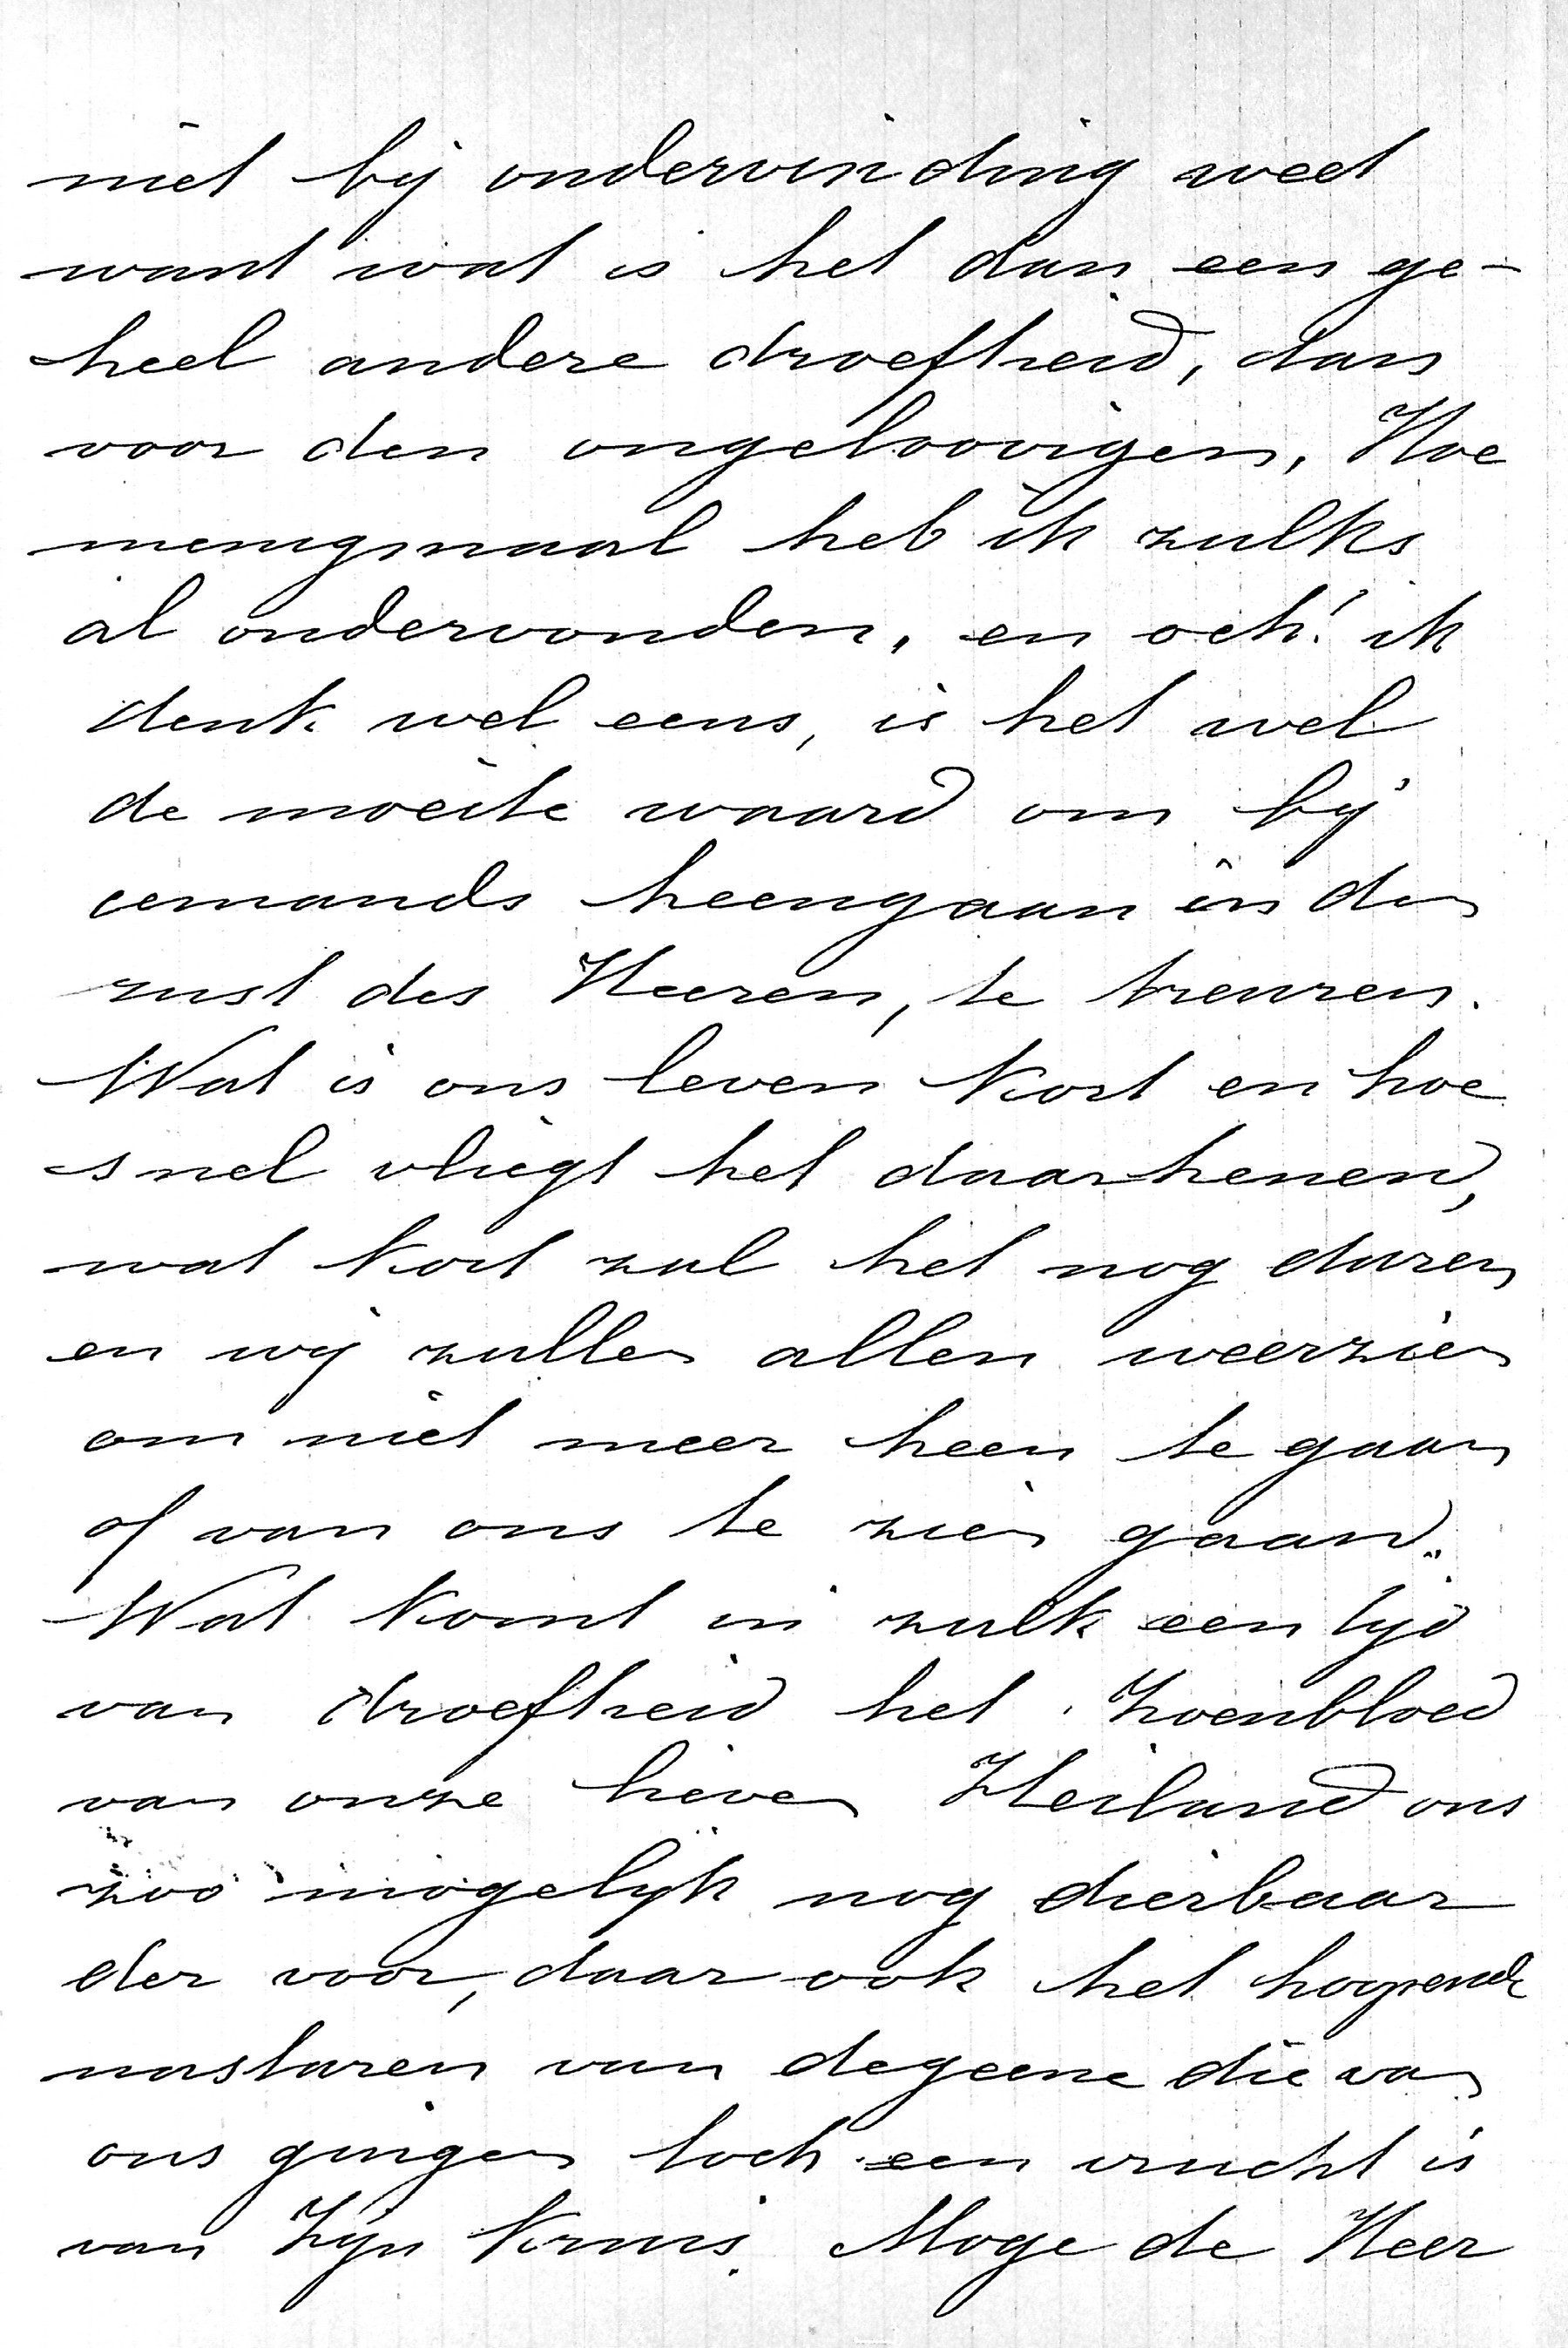 niet bij ondervinding weet
want wat is het dan een ge-
heel andere droefheid, dan
voor den ongeloovigen, Hoe
menigmaal heb ik zulks
al ondervonden, en och! ik
denk wel eens, is het wel
de moeite waard om bij
iemands heengaan in de
rust des Heeren, te treuren.
Wat is ons leven kort en hoe
snel vliegt het daarhenen,
wat kort zal het nog duren
en wij zullen allen weerzien
om niet meer heen te gaan
of van ons te zien gaan.
Wat komt in zulk een tijd
van droefheid het Zoenbloed
van onze lieven Heiland ons
zoo mogelijk nog dierbaar
der voor, daar ook het hopende
nastaren van degeene die van
ons gingen toch een vrucht is
van Zijn Kruis. Moge de Heer